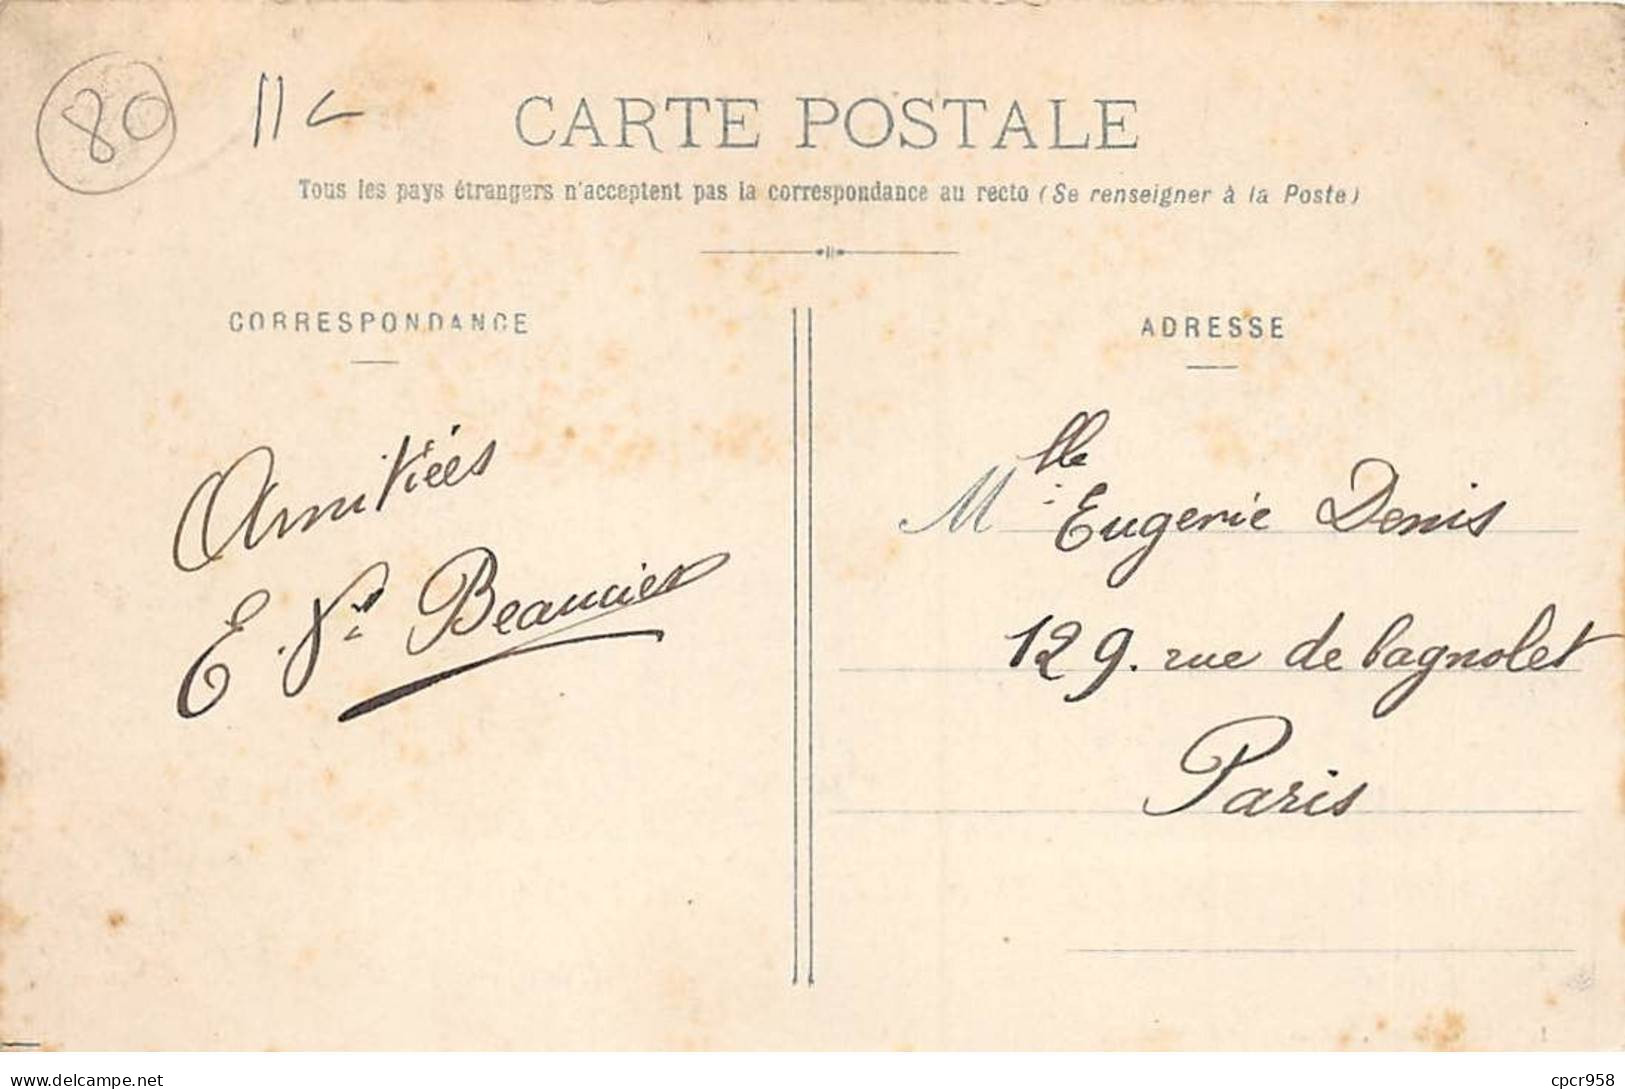 80
CARTE POSTALE
Tous les pays étrangers n'acceptent pas la correspondance au recto (Se renseigner à la Poste)
CORRESPONDANCE
Amitiés
E.
ADRESSE
Mlle Eugenie Denis
129. rue de bagnolet
Paris
delcampe.net
cpcr958